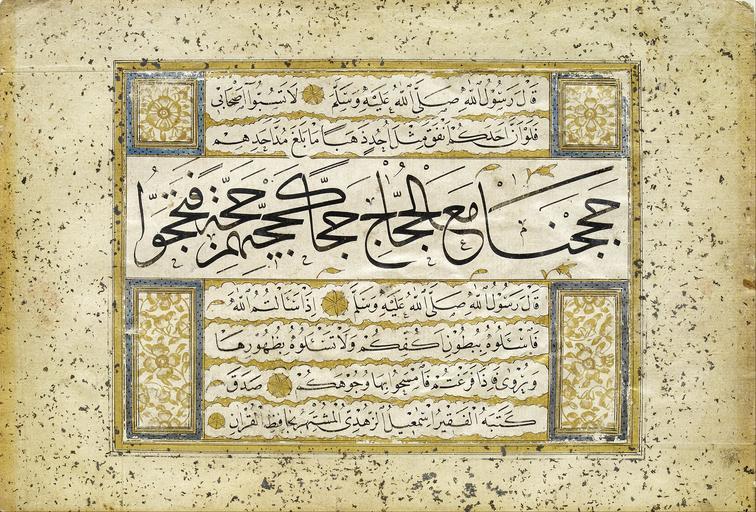 قَالَ رَسُولُ اللهِ صَلَّى اللهُ عَلَيْهِ وَسَلَّمَ لَا تَسُبُّوا أَصْحَابِي
فَلَوْ أَنَّ أَحَدَكُمْ أَنْفَقَ مِثْلَ أُحُدٍ ذَهَبًا مَا بَلَغَ مُدَّ أَحَدِهِمْ
حججنا مع الحجاج حجا كحجهم حجة فتحجوا
قَالَ رَسُولُ اللهِ صَلَّى اللهُ عَلَيْهِ وَسَلَّمَ إِذَا سَأَلْتُمُ اللهَ
فَاسْئَلُوهُ بِبُطُونِ أَكُفِّكُمْ وَلَا تَسْئَلُوهُ بِظُهُورِهَا
وَيُرْوَى فَإِذَا فَرَغْتُمْ فَامْسَحُوا بِهَا وُجُوهَكُمْ صَدَقَ
كَتَبَهُ الْفَقِيرُ إِسْمٰعِيلُ الزُّهْدِي الْمُشْتَهِرُ بِحَافِظِ الْقُرْآنِ